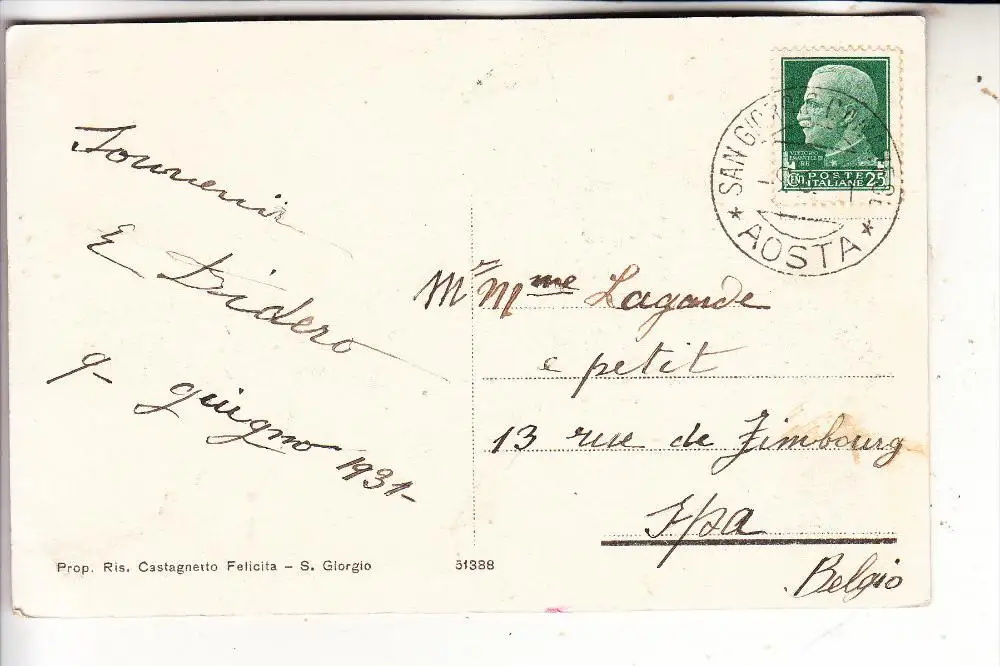 Souvenir
E Didero
9- giugno 1931-
Mr Mme Lagarde
e petit
13 rue de Limbourg
Spa
Belgio
Prop. Ris. Castagnetto Felicita – S. Giorgio
51388
SAN GIORGIO
* AOSTA *
VITTORIO
EMANUELE III
RE
CENT. POSTE
ITALIANE 25